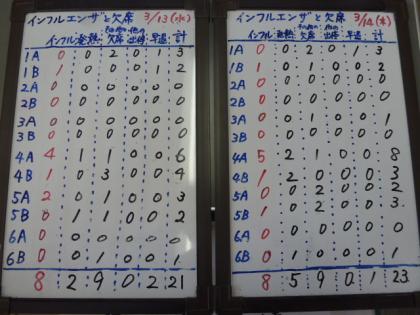 インフルエンザと欠席 3/13(水)
インフル 発熱 その他の欠席 他の出停 早退 計
1A 0 0 2 0 1 3
1B 1 0 0 0 1 2
2A 0 0 0 0 0 0
2B 0 0 0 0 0 0
3A 0 0 0 0 0 0
3B 0 0 0 0 0 0
4A 4 1 1 0 0 6
4B 1 0 3 0 0 4
5A 2 0 1 0 0 3
5B 0 1 1 0 0 2
6A 0 0 0 0 0 0
6B 0 0 1 0 0 1
8 2 9 0 2 21
インフルエンザと欠席 3/14(木)
インフル 発熱 その他の欠席 他の出停 早退 計
1A 0 0 2 0 1 3
1B 1 0 1 0 0 2
2A 0 0 0 0 0 0
2B 0 0 0 0 0 0
3A 0 0 1 0 0 1
3B 0 0 0 0 0 0
4A 5 2 1 0 0 8
4B 1 2 0 0 0 3
5A 0 0 2 0 0 2
5B 1 0 2 0 0 3
6A 0 0 0 0 0 0
6B 0 1 0 0 0 1
8 5 9 0 1 23